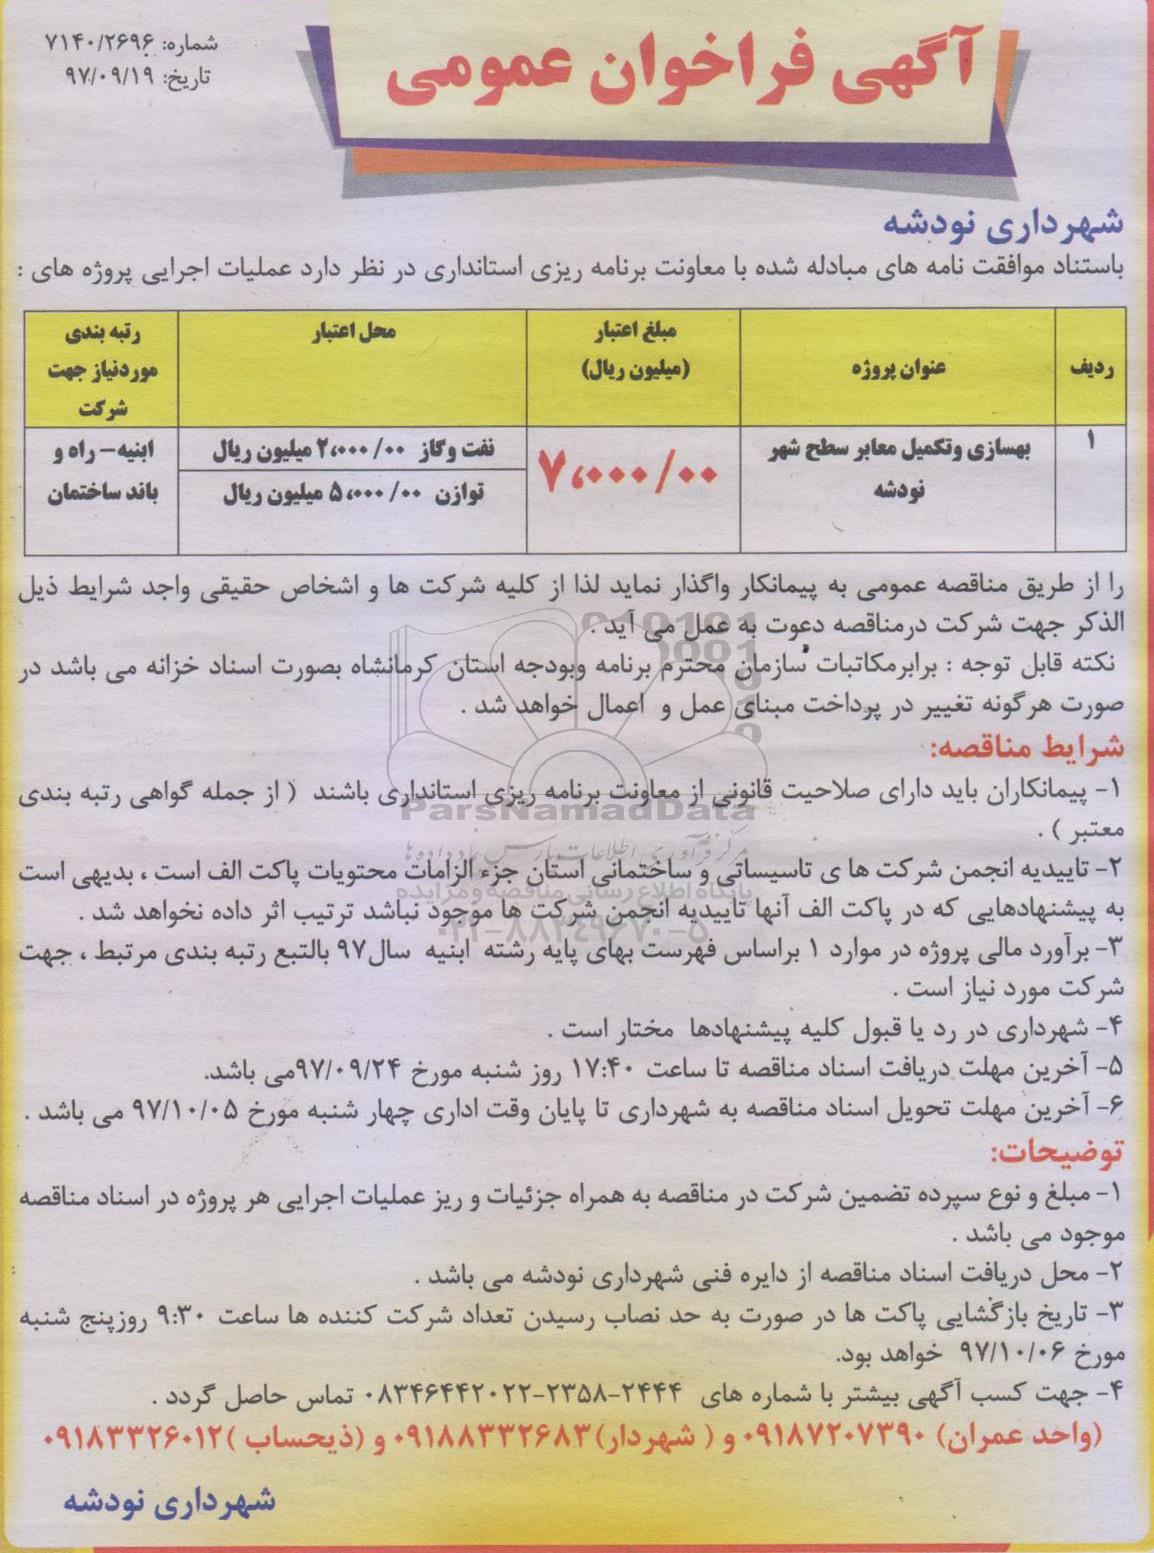 آگهی فراخوان عمومی
شماره: ۷۱۴۰/۲۶۹۶
تاریخ: ۹۷/۰۹/۱۹
شهرداری نودشه
باستناد موافقت نامه های مبادله شده با معاونت برنامه ریزی استانداری در نظر دارد عملیات اجرایی پروژه های :
ردیف
عنوان پروژه
مبلغ اعتبار
(میلیون ریال)
محل اعتبار
رتبه بندی
موردنیاز جهت
شرکت
۱
بهسازی وتکمیل معابر سطح شهر
نودشه
۷،۰۰۰/۰۰
نفت وگاز ۲،۰۰۰/۰۰ میلیون ریال
توازن ۵،۰۰۰/۰۰ میلیون ریال
ابنیه – راه و
باند ساختمان
را از طریق مناقصه عمومی به پیمانکار واگذار نماید لذا از کلیه شرکت ها و اشخاص حقیقی واجد شرایط ذیل
الذکر جهت شرکت درمناقصه دعوت به عمل می آید .
نکته قابل توجه : برابرمکاتبات سازمان محترم برنامه وبودجه استان کرمانشاه بصورت اسناد خزانه می باشد در
صورت هرگونه تغییر در پرداخت مبنای عمل و اعمال خواهد شد .
شرایط مناقصه:
۱- پیمانکاران باید دارای صلاحیت قانونی از معاونت برنامه ریزی استانداری باشند ( از جمله گواهی رتبه بندی
معتبر ) .
۲- تاییدیه انجمن شرکت ها ی تاسیساتی و ساختمانی استان جزء الزامات محتویات پاکت الف است ، بدیهی است
به پیشنهادهایی که در پاکت الف آنها تاییدیه انجمن شرکت ها موجود نباشد ترتیب اثر داده نخواهد شد .
۳- برآورد مالی پروژه در موارد ۱ براساس فهرست بهای پایه رشته ابنیه سال۹۷ بالتبع رتبه بندی مرتبط ، جهت
شرکت مورد نیاز است .
۴- شهرداری در رد یا قبول کلیه پیشنهادها مختار است .
۵- آخرین مهلت دریافت اسناد مناقصه تا ساعت ۱۷:۴۰ روز شنبه مورخ ۹۷/۰۹/۲۴می باشد.
۶- آخرین مهلت تحویل اسناد مناقصه به شهرداری تا پایان وقت اداری چهار شنبه مورخ ۹۷/۱۰/۰۵ می باشد .
توضیحات:
۱- مبلغ و نوع سپرده تضمین شرکت در مناقصه به همراه جزئیات و ریز عملیات اجرایی هر پروژه در اسناد مناقصه
موجود می باشد .
۲- محل دریافت اسناد مناقصه از دایره فنی شهرداری نودشه می باشد .
۳- تاریخ بازگشایی پاکت ها در صورت به حد نصاب رسیدن تعداد شرکت کننده ها ساعت ۹:۳۰ روزپنج شنبه
مورخ ۹۷/۱۰/۰۶ خواهد بود.
۴- جهت کسب آگهی بیشتر با شماره های ۲۴۴۴-۲۳۵۸-۰۸۳۴۶۴۴۲۰۲۲ تماس حاصل گردد .
(واحد عمران) ۰۹۱۸۷۲۰۷۳۹۰ و ( شهردار)۰۹۱۸۸۳۳۲۶۸۳ و (ذیحساب )۰۹۱۸۳۳۲۶۰۱۲
شهرداری نودشه
ParsNamadData
پایگاه اطلاع رسانی مناقصه و مزایده
۰۲۱-۸۸۳۴۹۶۷۰-۵